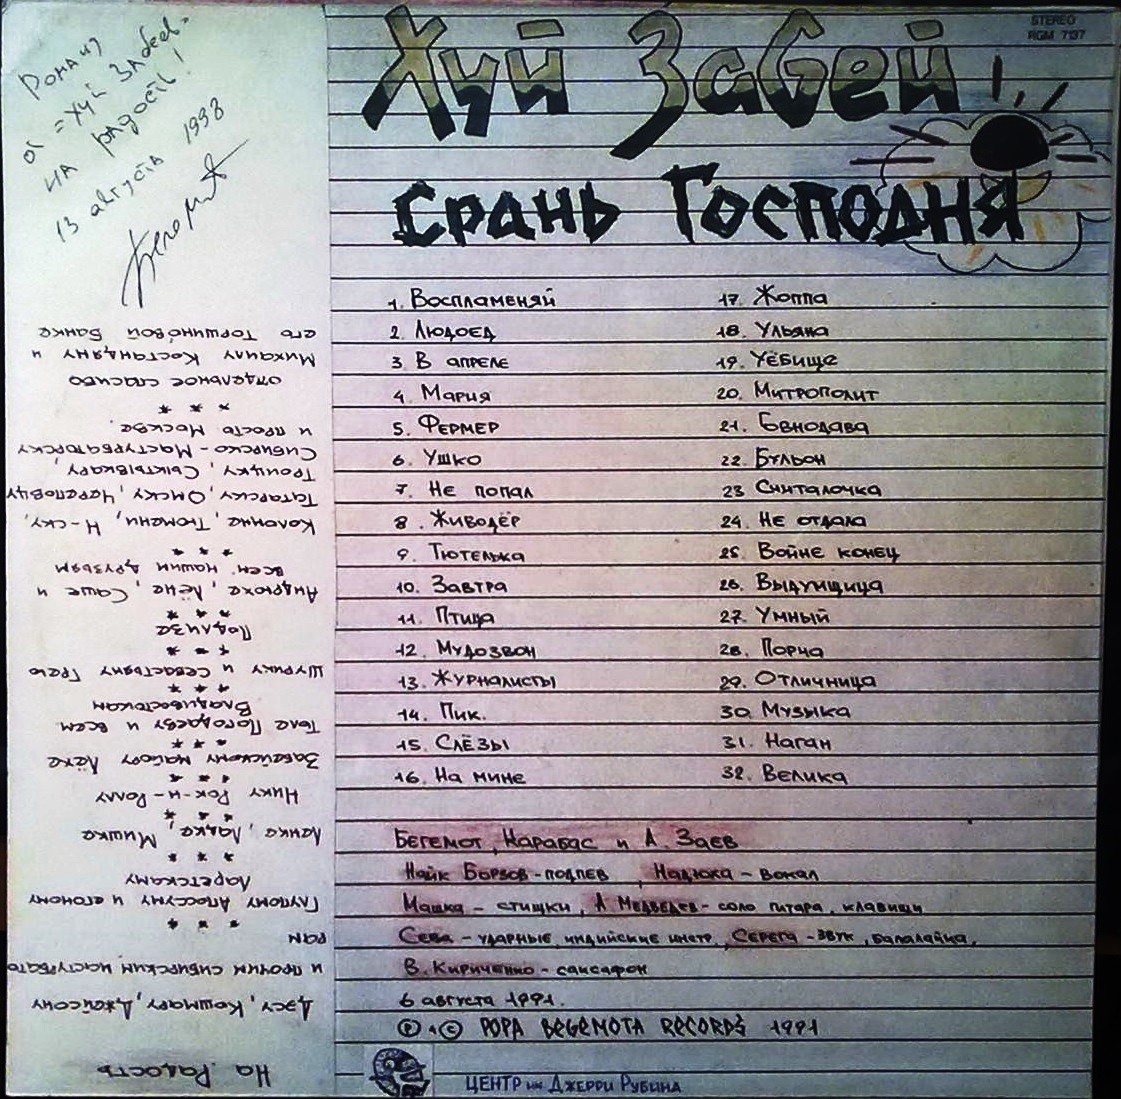 Роману
от "Хуй Забей"
на радость!
13 августа 1998
Бегемот
STEREO
RGM 7137
Хуй Забей
Срань Господня
1. Воспламеняй
2. Людоед
3. В апреле
4. Мария
5. Фермер
6. Ушко
7. Не попал
8. Живодёр
9. Тютелька
10. Завтра
11. Птица
12. Мудозвон
13. Журналисты
14. Пик.
15. Слёзы
16. На мине
17. Жоппа
18. Ульяна
19. Уёбище
20. Митрополит
21. Говнодава
22. Бульон
23 Считалочка
24. Не отдала
25. Войне конец
26. Выдумщица
27. Умный
28. Порча
29. Отличница
30. Музыка
31. Наган
32. Велика
Бегемот, Карабас и А. Заев
Найк Борзов - подпев, Надюха - вокал
Машка - стишки, А Медведев - соло гитара, клавиши
Сева - ударные, индийские инстр., Серега - звук, балалайка,
В. Кириченко - саксафон
6 августа 1991.
℗ & © POPA BEGEMOTA RECORDS 1991
ЦЕНТР им Джерри Рубина
На Радость
Дэсу, Кошмару, Джейсону
и прочим сибирским мастурбато
рам
* * *
Глупому Апоссуму и егоному
Ларетскому
* * *
Ланке, Ладке, Мишке
* * *
Нику Рок-н-Роллу
* * *
Забейскому майору Лёхе
* * *
Толе Погодаеву и всем
Владивостокам
* * *
Шурику и Севастьяну Грею
* * *
Подлизе
* * *
Андрюхе, Лёне, Саше и
всем нашим друзьям
* * *
Коломне, Тюмени, Н-ску,
Татарску, Омску, Череповцу
Троицку, Сыктывкару,
Сибирско-Мастурбаторску
и просто Москве.
* * *
отдельное спасибо
Михаилу Костандяну и
его Торшиновой Банке